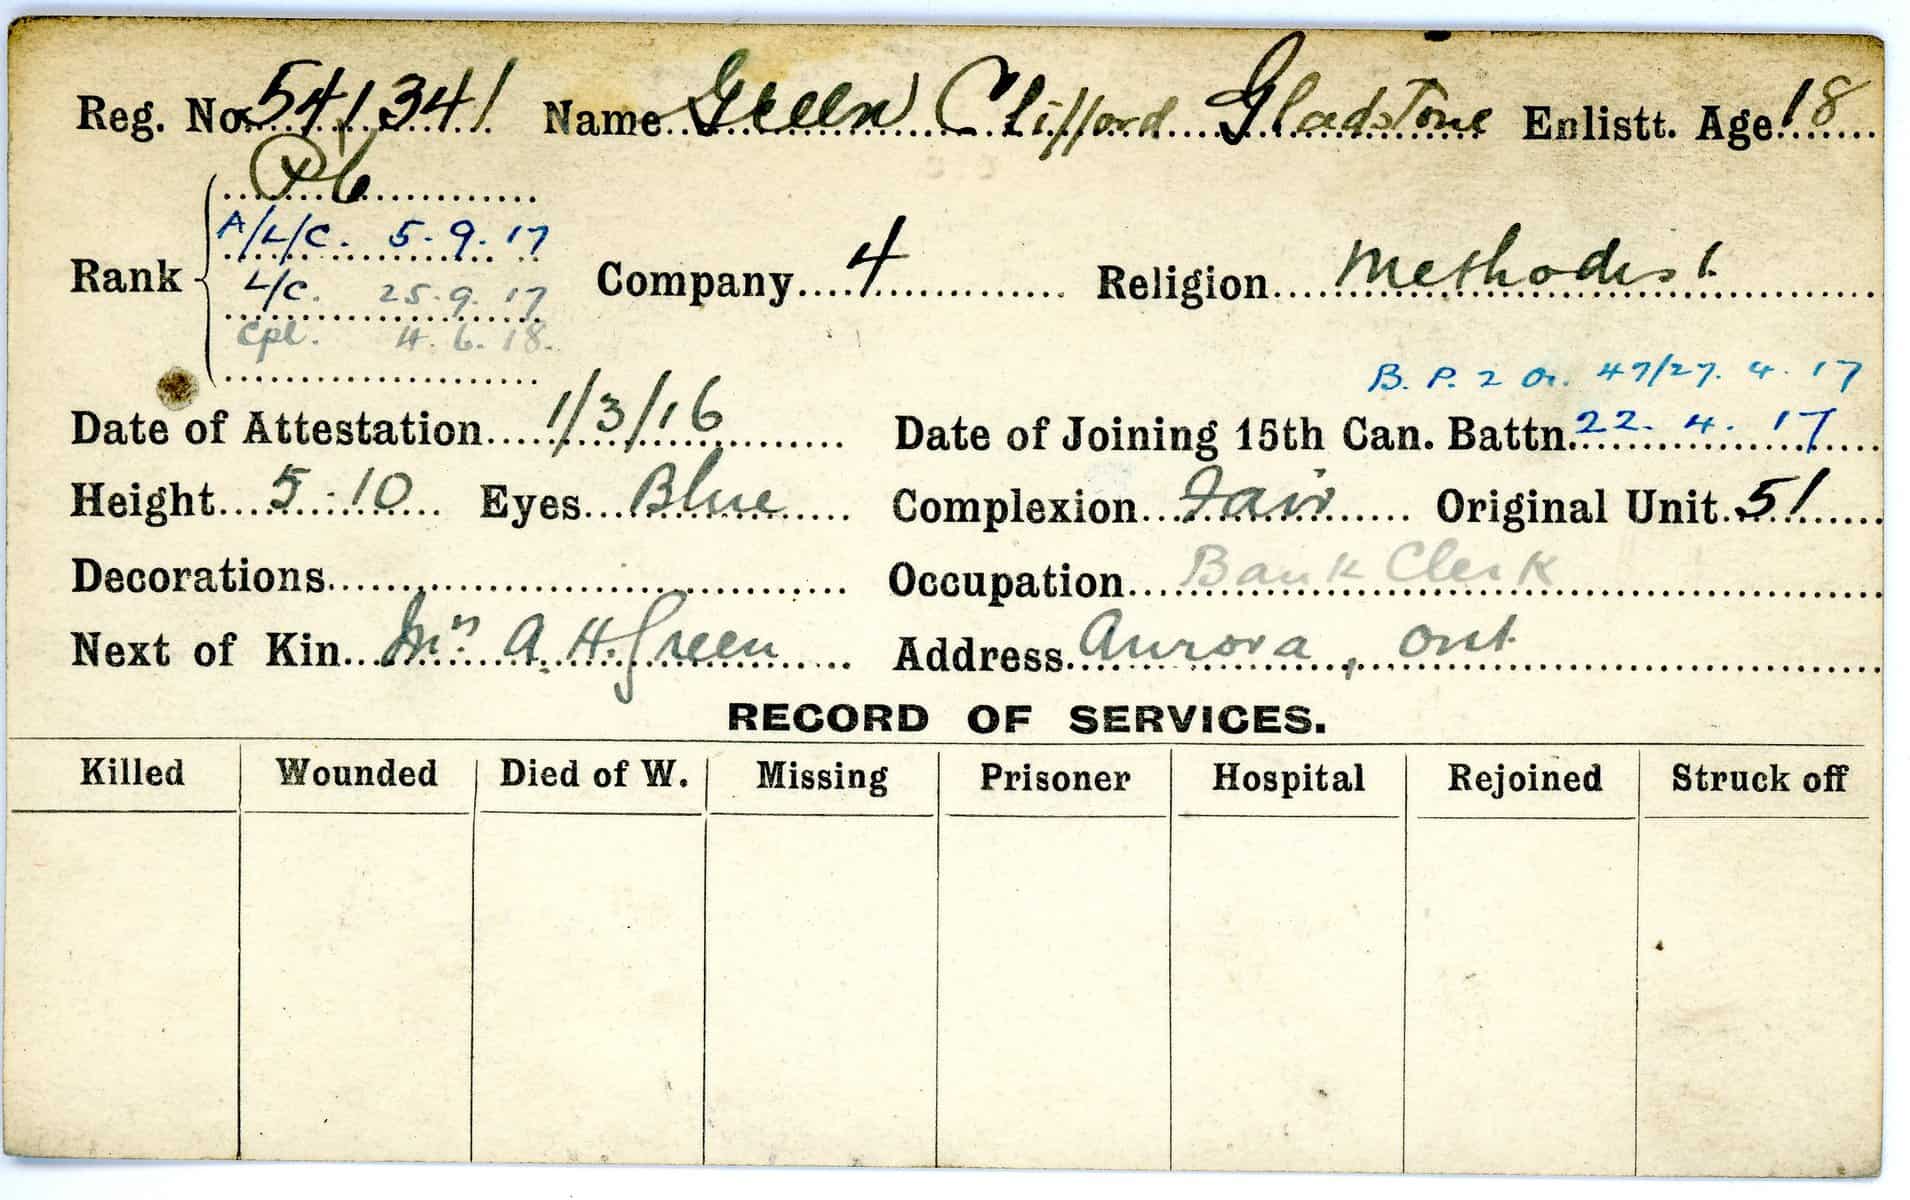 Reg. No. 541341 Name Green Clifford Gladstone Enlistt. Age 18
Rank
A/L/C. 5.9.17
L/C. 25.9.17
Cpl. 4.6.18.
Company 4 Religion Methodist.
B. P. 2 Or. 47/27. 4. 17
Date of Attestation 1/3/16 Date of Joining 15th Can. Battn. 22. 4. 17
Height 5.10 Eyes Blue Complexion Fair Original Unit 51
Decorations Occupation Bank Clerk
Next of Kin Mrs A. H. Green Address Aurora, Ont.
RECORD OF SERVICES.
Killed Wounded Died of W. Missing Prisoner Hospital Rejoined Struck off